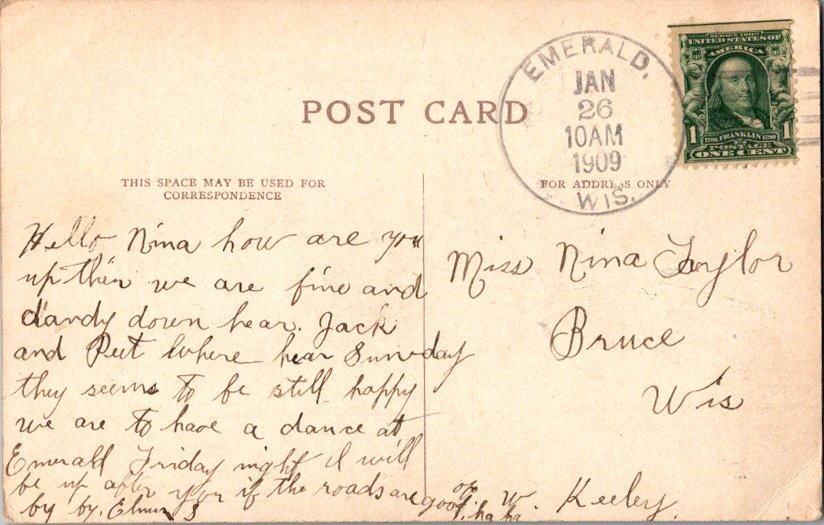 POST CARD
EMERALD,
JAN
26
10AM
1909
WIS.
SERIES 1902
UNITED STATES OF
AMERICA
1706 FRANKLIN 1790
1 POSTAGE 1
ONE CENT
THIS SPACE MAY BE USED FOR
CORRESPONDENCE
FOR ADDRESS ONLY
Hello Nina how are you
up their we are fine and
dandy down hear. Jack
and Peet where hear Sunday
they seems to be still happy
we are to have a dance at
Emerald Friday night I will
be up after you if the roads are good
by by. Elmer ha ha
Miss Nina Taylor
Bruce
Wis
W. Keeley.